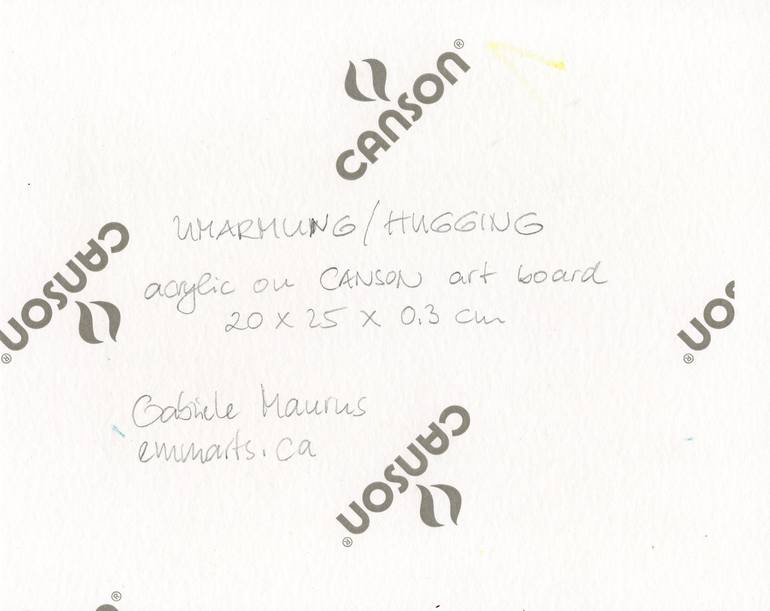 CANSON®
UMARMUNG/HUGGING
CANSON®
acrylic on CANSON art board
20 x 25 x 0.3 cm
Gabriele Maurus
emmarts.ca
CANSON®